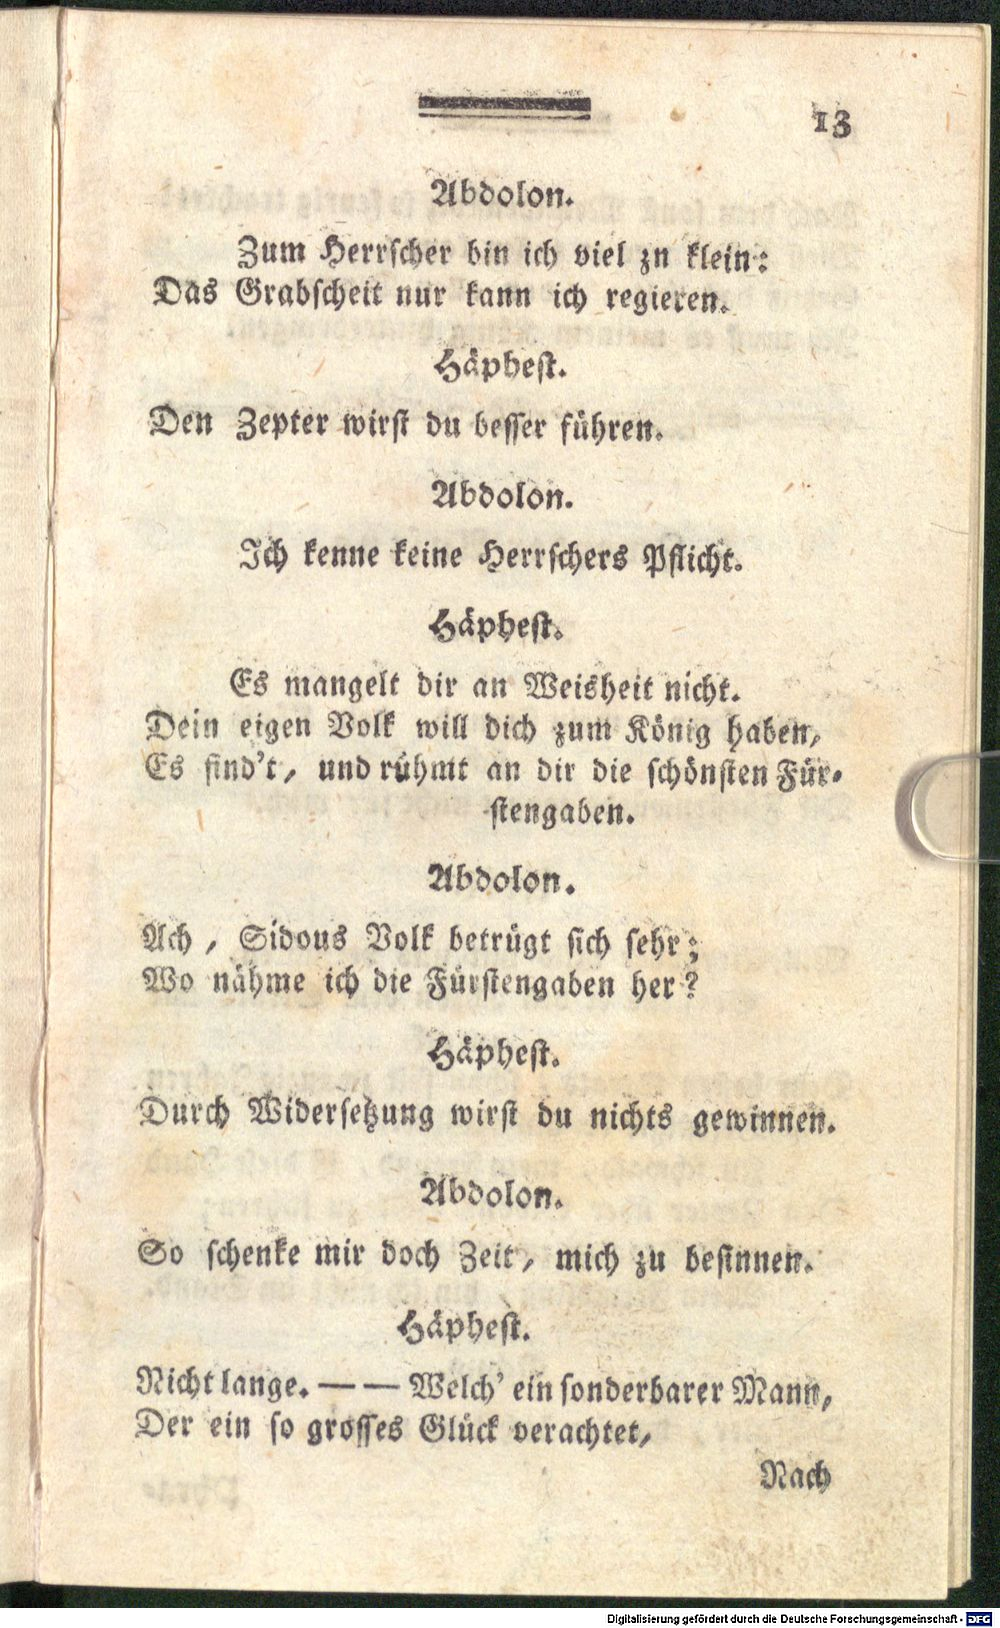 13
Abdolon.
Zum Herrscher bin ich viel zu klein:
Das Grabscheit nur kann ich regieren.
Häphest.
Den Zepter wirst du besser führen.
Abdolon.
Ich kenne keine Herrschers Pflicht.
Häphest.
Es mangelt dir an Weisheit nicht.
Dein eigen Volk will dich zum König haben,
Es find't, und rühmt an dir die schönsten Für-
stengaben.
Abdolon.
Ach, Sidons Volk betrügt sich sehr;
Wo nähme ich die Fürstengaben her?
Häphest.
Durch Widersetzung wirst du nichts gewinnen.
Abdolon.
So schenke mir doch Zeit, mich zu besinnen.
Häphest.
Nicht lange. — — Welch' ein sonderbarer Mann,
Der ein so grosses Glück verachtet,
Nach
Digitalisierung gefördert durch die Deutsche Forschungsgemeinschaft - DFG